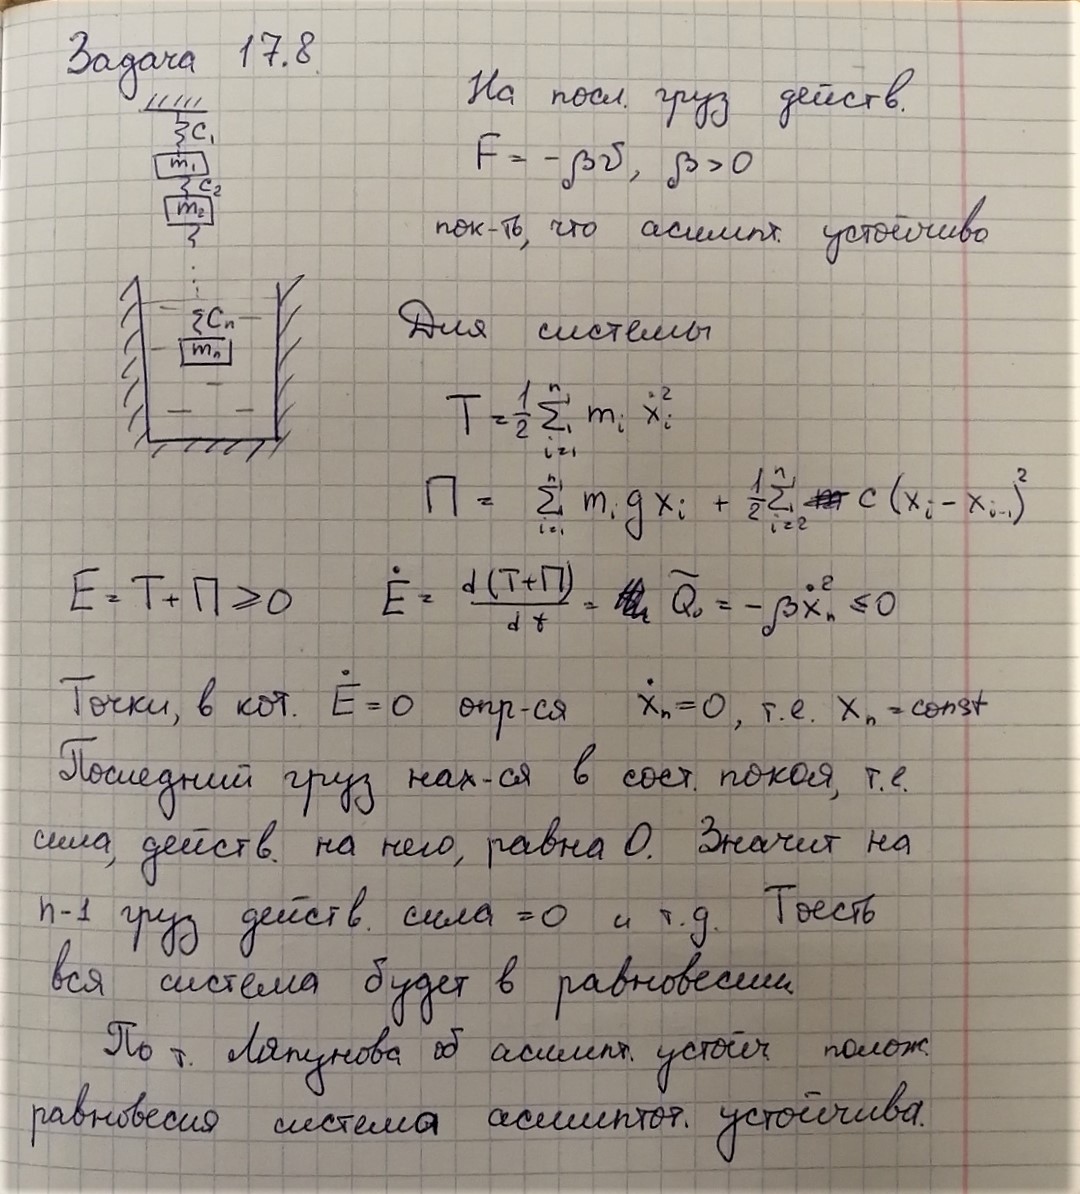 Задача 17.8
C₁
m₁
C₂
m₂
Cₙ
mₙ
На посл. груз действ.
F = -βv, β>0
пок-ть, что асимпт. устойчиво
Для системы
T = 1/2 Σⁿᵢ₌₁ mᵢ ẋᵢ²
П = Σⁿᵢ₌₁ mᵢ g xᵢ + 1/2 Σⁿᵢ₌₂ c (xᵢ - xᵢ₋₁)²
E = T + П ⩾ 0 Ė = d(T+П)/dt = Q̃₀ = -βẋₙ² ≤ 0
Точки, в кот. Ė = 0 опр-ся ẋₙ = 0, т.е. xₙ = const
Последний груз нах-ся в сост. покоя, т.е.
сила, действ. на него, равна 0. Значит на
n-1 груз действ. сила = 0 и т.д. Тоесть
вся система будет в равновесии.
По т. Ляпунова об асимпт. устойч полож.
равновесия система асимптот. устойчива.